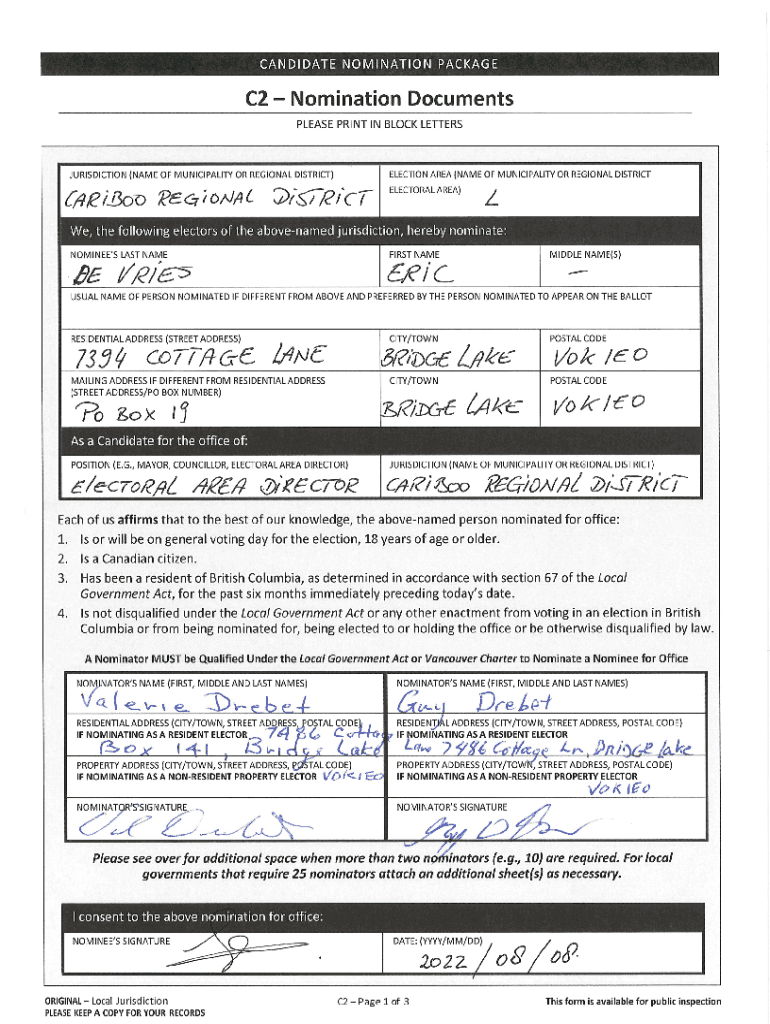 CANDIDATE NOMINATION PACKAGE
C2 – Nomination Documents
PLEASE PRINT IN BLOCK LETTERS
JURISDICTION (NAME OF MUNICIPALITY OR REGIONAL DISTRICT)
CARIBOO REGIONAL DISTRICT
ELECTION AREA (NAME OF MUNICIPALITY OR REGIONAL DISTRICT
ELECTORAL AREA)
L
We, the following electors of the above-named jurisdiction, hereby nominate:
NOMINEE'S LAST NAME
DE VRIES
FIRST NAME
ERIC
MIDDLE NAME(S)
—
USUAL NAME OF PERSON NOMINATED IF DIFFERENT FROM ABOVE AND PREFERRED BY THE PERSON NOMINATED TO APPEAR ON THE BALLOT
RESIDENTIAL ADDRESS (STREET ADDRESS)
7394 COTTAGE LANE
CITY/TOWN
BRIDGE LAKE
POSTAL CODE
VOK IEO
MAILING ADDRESS IF DIFFERENT FROM RESIDENTIAL ADDRESS
(STREET ADDRESS/PO BOX NUMBER)
PO BOX 19
CITY/TOWN
BRIDGE LAKE
POSTAL CODE
VOK IEO
As a Candidate for the office of:
POSITION (E.G., MAYOR, COUNCILLOR, ELECTORAL AREA DIRECTOR)
ElECTORAL AREA DIRECTOR
JURISDICTION (NAME OF MUNICIPALITY OR REGIONAL DISTRICT)
CARIBOO REGIONAL DISTRICT
Each of us affirms that to the best of our knowledge, the above-named person nominated for office:
1. Is or will be on general voting day for the election, 18 years of age or older.
2. Is a Canadian citizen.
3. Has been a resident of British Columbia, as determined in accordance with section 67 of the Local
Government Act, for the past six months immediately preceding today's date.
4. Is not disqualified under the Local Government Act or any other enactment from voting in an election in British
Columbia or from being nominated for, being elected to or holding the office or be otherwise disqualified by law.
A Nominator MUST be Qualified Under the Local Government Act or Vancouver Charter to Nominate a Nominee for Office
NOMINATOR'S NAME (FIRST, MIDDLE AND LAST NAMES)
Valerie Drebet
RESIDENTIAL ADDRESS (CITY/TOWN, STREET ADDRESS, POSTAL CODE)
IF NOMINATING AS A RESIDENT ELECTOR 7486 Cottage
Box 141, Bridge Lake
PROPERTY ADDRESS (CITY/TOWN, STREET ADDRESS, POSTAL CODE)
IF NOMINATING AS A NON-RESIDENT PROPERTY ELECTOR VOKIEO
NOMINATOR'S SIGNATURE
NOMINATOR'S NAME (FIRST, MIDDLE AND LAST NAMES)
Guy Drebet
RESIDENTIAL ADDRESS (CITY/TOWN, STREET ADDRESS, POSTAL CODE)
IF NOMINATING AS A RESIDENT ELECTOR
7486 Cottage Ln, BRIDGE lake
PROPERTY ADDRESS (CITY/TOWN, STREET ADDRESS, POSTAL CODE)
IF NOMINATING AS A NON-RESIDENT PROPERTY ELECTOR
VOKIEO
NOMINATOR'S SIGNATURE
Please see over for additional space when more than two nominators (e.g., 10) are required. For local
governments that require 25 nominators attach an additional sheet(s) as necessary.
I consent to the above nomination for office:
NOMINEE'S SIGNATURE
DATE: (YYYY/MM/DD)
2022/08/08.
ORIGINAL – Local Jurisdiction
PLEASE KEEP A COPY FOR YOUR RECORDS
C2 – Page 1 of 3
This form is available for public inspection